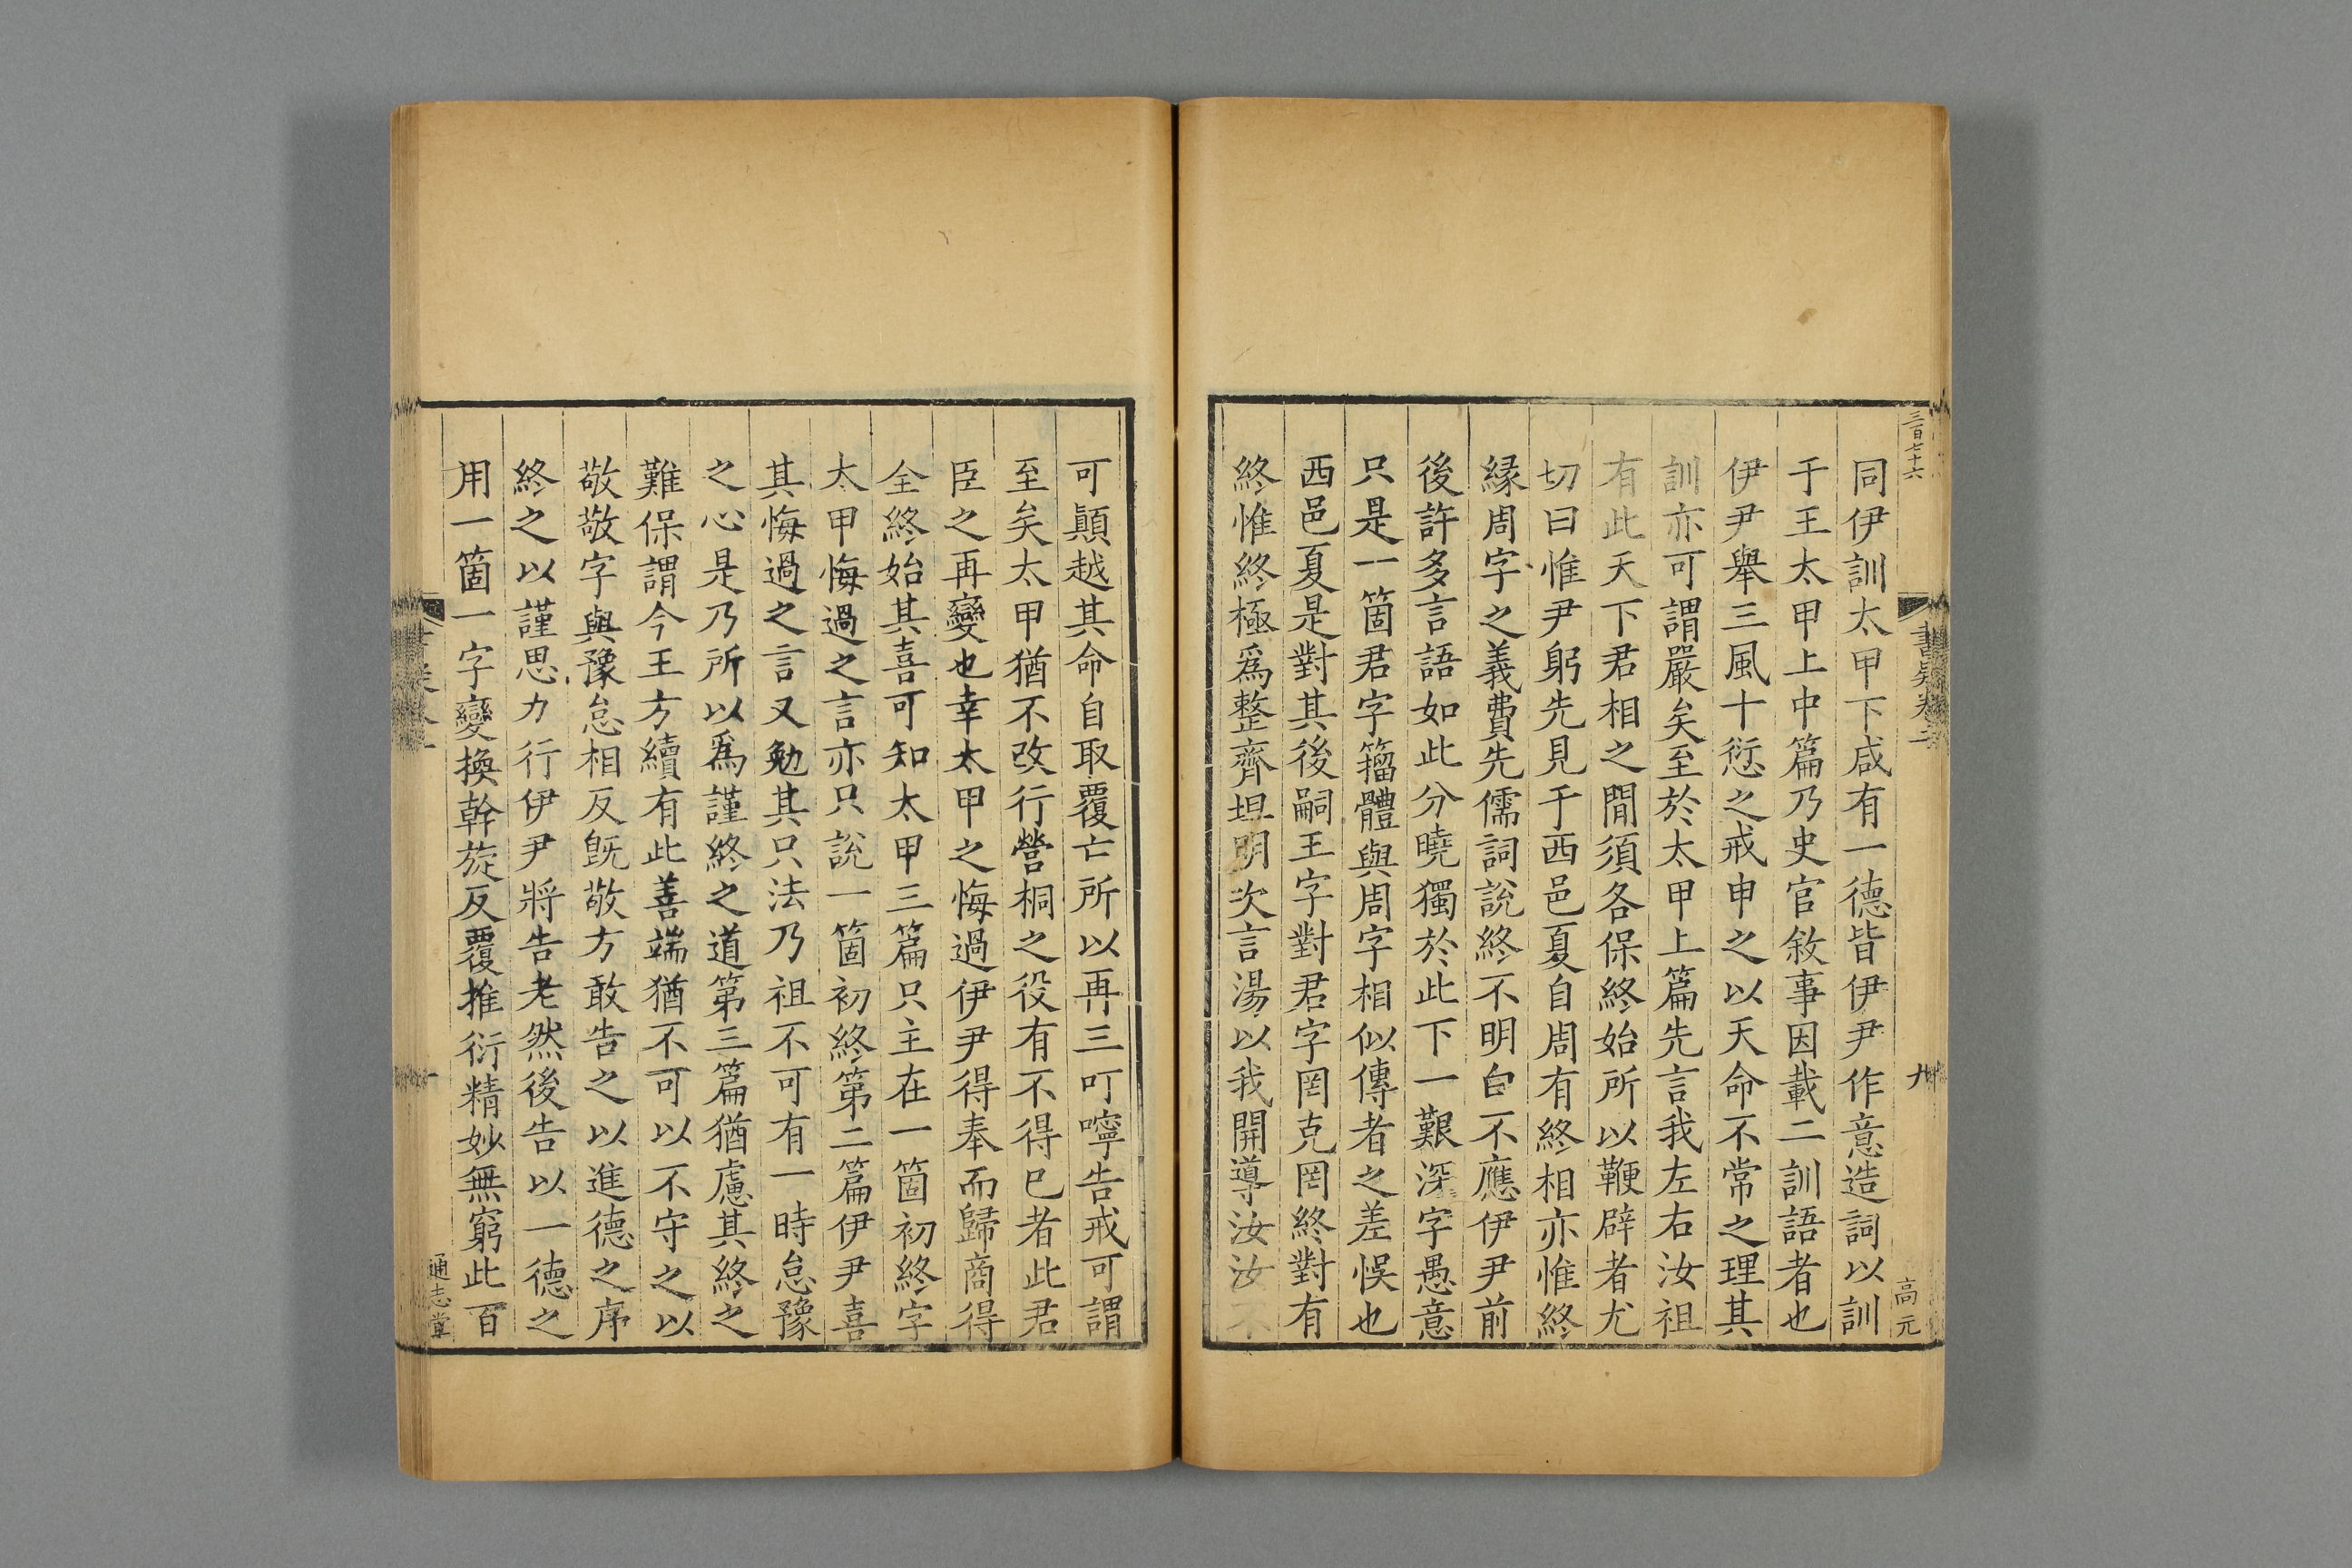 三百七十六
書疑卷三
九
高元
同伊訓太甲下咸有一德皆伊尹作意造詞以訓
于王太甲上中篇乃史官敘事因載二訓語者也
伊尹舉三風十愆之戒申之以天命不常之理其
訓亦可謂嚴矣至於太甲上篇先言我左右汝祖
有此天下君相之間須各保終始所以鞭辟者尤
切曰惟尹躬先見于西邑夏自周有終相亦惟終
緣周字之義費先儒詞說終不明白不應伊尹前
後許多言語如此分曉獨於此下一艱深字愚意
只是一箇君字籀體與周字相似傳者之差悞也
西邑夏是對其後嗣王字對君字罔克罔終對有
終惟終極爲整齊坦明次言湯以我開導汝汝不
可顛越其命自取覆亡所以再三叮嚀告戒可謂
至矣太甲猶不改行營桐之役有不得已者此君
臣之再變也幸太甲之悔過伊尹得奉而歸商得
全終始其喜可知太甲三篇只主在一箇初終字
太甲悔過之言亦只說一箇初終第二篇伊尹喜
其悔過之言又勉其只法乃祖不可有一時怠豫
之心是乃所以爲謹終之道第三篇猶慮其終之
難保謂今王方續有此善端猶不可以不守之以
敬敬字與豫怠相反旣敬方敢告之以進德之序
終之以謹思力行伊尹將告老然後告以一德之
用一箇一字變換幹旋反覆推衍精妙無窮此百
通志堂